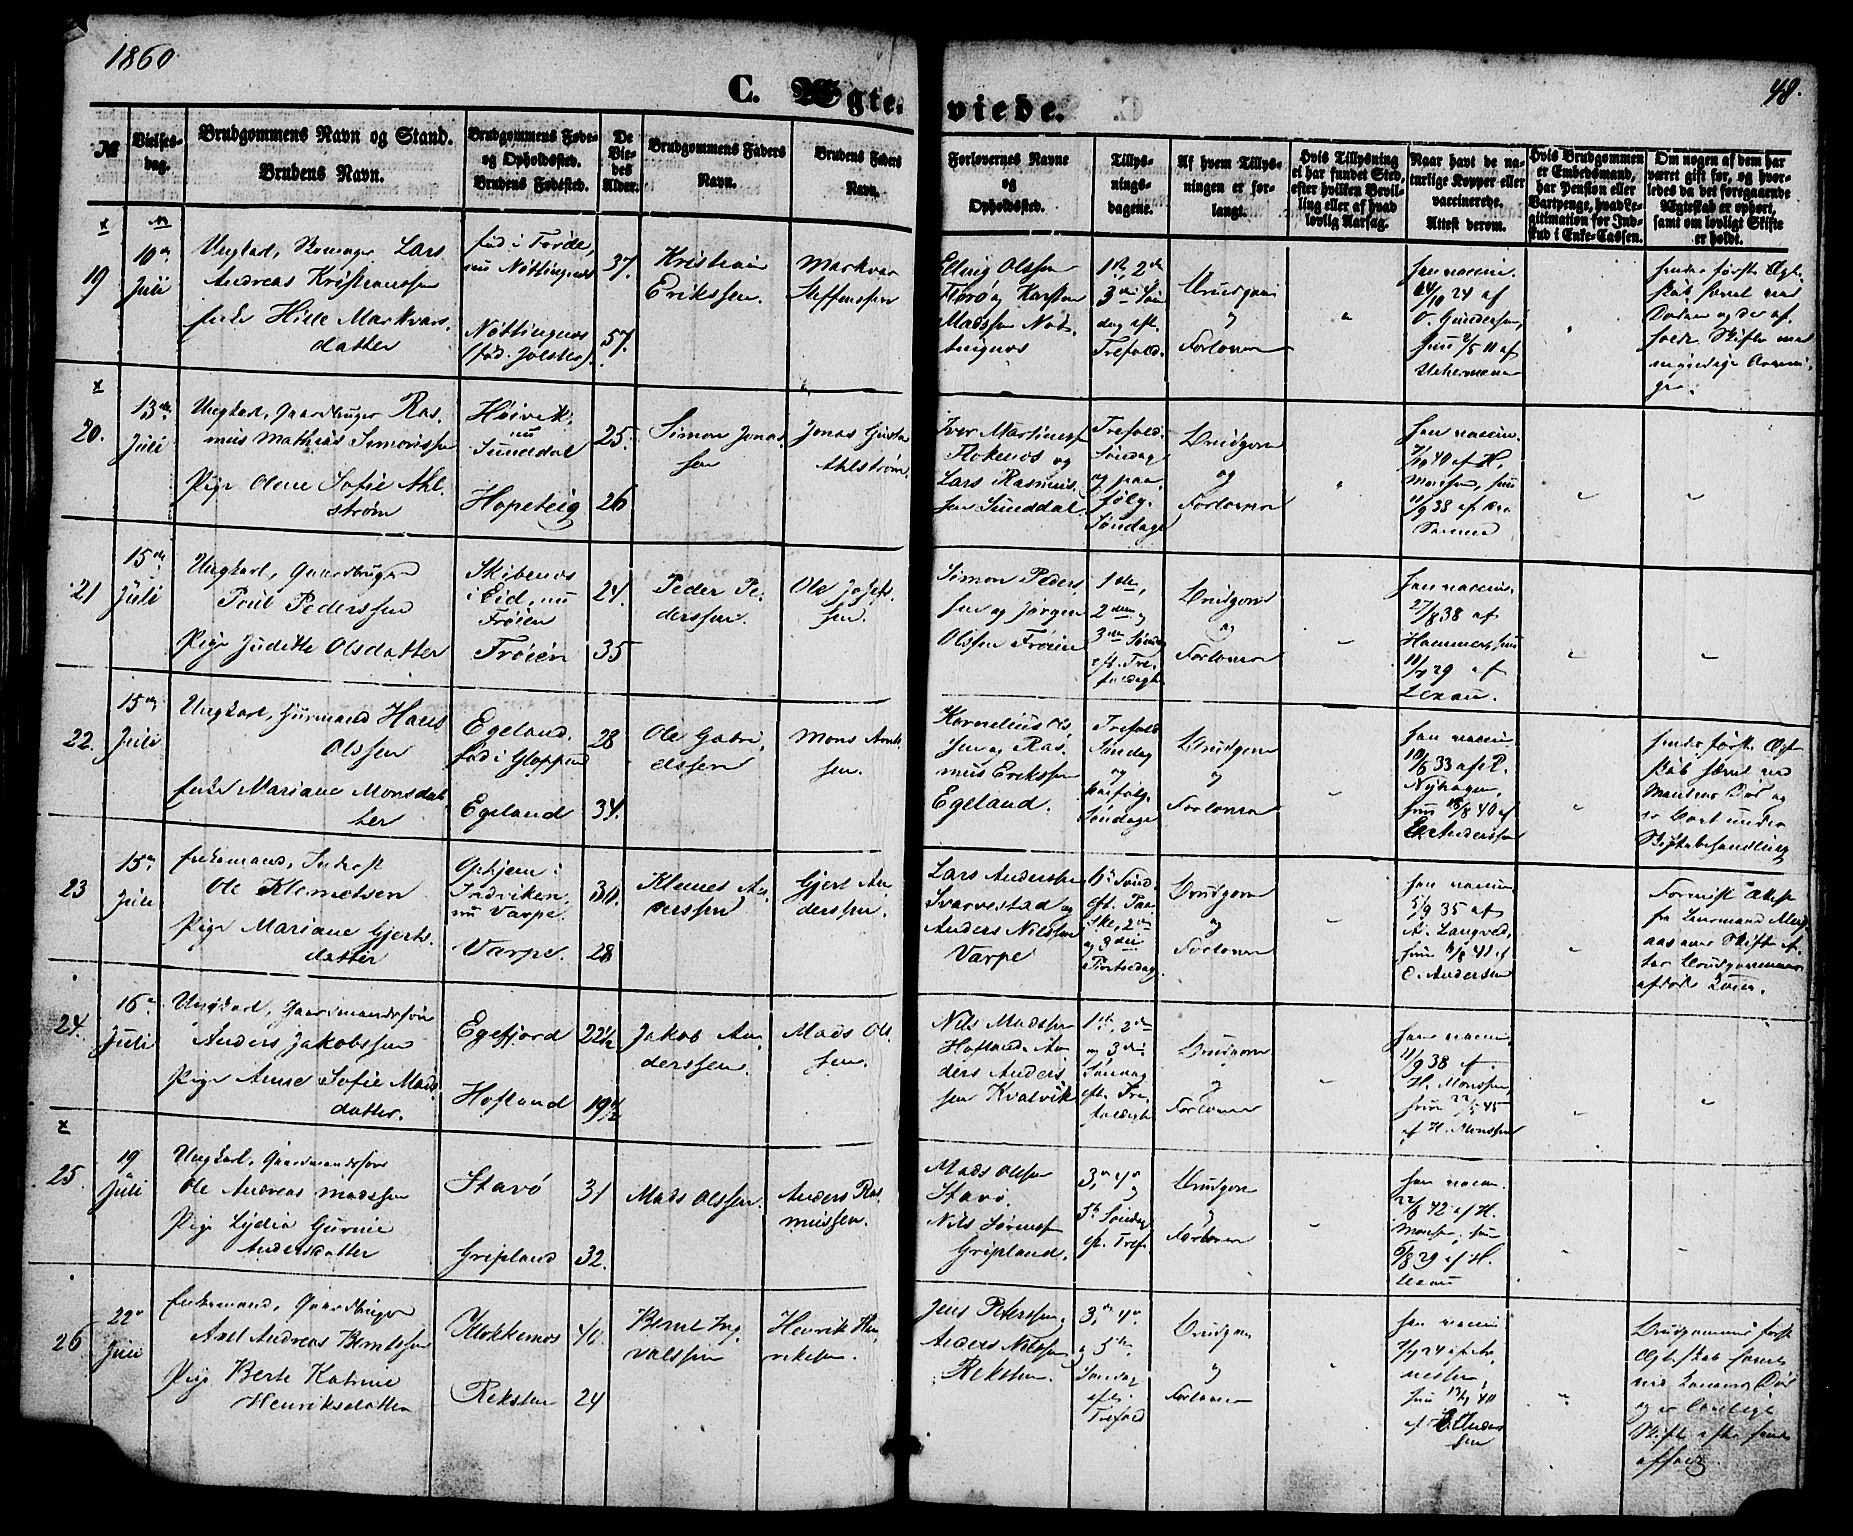 1860
48.
C. Ægteviede.
№
Vielses-
dag.
Brudgommens Navn og Stand.
Brudens Navn.
Brudgommens Føde-
og Opholdssted.
Brudens Fødested.
De
Vie-
des
Alder.
Brudgommens Faders
Navn.
Brudens Faders
Navn.
Forlovernes Navne
og
Opholdssted.
Tillys-
nings-
dagene.
Af hvem Tillys-
ningen er for-
langt.
Hvis Tillysning
ei har fundet Sted,
efter hvilken Bevil-
ling eller af hvad
lovlig Aarsag.
Naar havt de na-
turlige Kopper eller
vaccinerede.
Attest derom.
Hvis Brudgommen
er Embedsmand,
har Pension eller
Vartpenge, hvad Le-
gitimation for Ind-
skud i Enke-Cassen.
Om nogen af dem har
været gift før, og hvor-
ledes da det foregaaende
Ægteskab er ophørt,
samt om lovligt Skifte
er holdt.
19
10de
Juli
Ungkarl, Lars
Andreas Kristianssen
Enke Hille Markvars-
datter
fød i Førde,
nu Nøttingnes
Nøttingnes
(fød. Jølster)
37.
57.
Kristian
Erikssen.
Markvar
Steffenssen
Elling Olssen
Florø og Karsten
Madssen Nøt-
tingnes
1ste, 2den
3die Søn-
dag eft.
Trefold.
Brudgom
og
Forlovere
han vaccin.
24 af
O. Gundersen,
hun 11 af
Uchermann
hendes første Ægte-
skab hævet ved
Døden og der af-
holdt Skifte med
myndige Arvin-
ger.
20.
13de
Juli
Ungkarl, Gaardbruger Ras-
mus Mathias Simonssen
Pige Oline Sofie Ahl-
strøm
Høivik,
nu
Sunddal
Hopeteig
25.
26
Simon Jonas-
sen
Jonas Gustav
Ahlstrøm.
Iver Martinussen
Flokenes og
Lars Rasmus-
sen Sunddal.
Trefold.
Søndag
og paa-
følg.
Søndage
Brudgom
og
Forlovere
han vaccin.
40 af H.
Monssen, hun
11/9 38 af
21
15de
Juli
Ungkarl, Gaardbruger
Poul Pederssen
Pige Judithe Olsdatter
Skibenes
i Eid, nu
Frøien
Frøien
24.
35
Peder Pe-
derssen.
Ole Josef-
sen.
Simon Peders-
sen og Jørgen
Olssen Frøien
1ste,
2den og
3die Søndag
eft. Tre-
foldigh.
Brudgom
og
Forlovere
han vaccin.
27/8 38 af
Hammer, hun
29 af
Lexau.
22.
15de
Juli
Ungkarl, Huusmand Hans
Olssen
Enke Mariane Monsdat-
ter
Egeland.
fød i Gloppen
Egeland
28
34.
Ole Gabri-
elssen
Mons Arnt-
sen.
Kornelius Ols-
sen og Ras-
mus Erikssen
Egeland.
Trefold.
Søndag
og
paafølg.
Søndage
Brudgom
og
Forlovere
han vaccin.
33 af P.
Nyhagen,
hun 40 af
E. Anderssen
hendes første Ægte-
skab hævet ved
Mandens Død og
er Boet under
Skiftebehandling
23
15de
Juli
Enkemand, Inderst
Ole Klemetsen
Pige Mariane Gjerts-
datter
i
Indviken,
nu Varpe.
Varpe.
30.
28
Klemet An-
derssen
Gjert An-
derssen.
Lars Anderssen
Svarvestad og
Anders Nilssen
Varpe
6te Sønd.
eft. Paa-
ske, 2den
og 3die
Pintsedag
Brudgom
og
Forlovere
han vaccin.
5/9 35 af
A. Langved,
hun 41 af
E. Andersen
Forevist Attest
fra Lensmand
aas om Skifte ef-
ter Brudgommens
afdøde Kone.
24.
16de
Juli
Ungkarl, Gaardmandssøn
Anders Jakobssen
Pige Anne Sofie Mads-
datter.
Egefjord
Hofland
22½
19½
Jakob An-
derssen.
Mads Ol-
sen.
Nils Madssen
Hofland, An-
ders Anders-
sen Kvalvik
1ste, 2den
og 3die
Søndag
eft. Tre-
foldigh.
Brudgom
og
Forlovere
han vaccin.
11/9 38 af
H. Monssen,
hun 22/5 45
af H. Monssen
25.
19
Juli
Ungkarl, Gaardmandssøn
Ole Andreas Madssen
Pige Lydia Gurine
Andersdatter
Stavø
Gripland
31
32.
Mads Olssen.
Anders Ras-
mussen.
Mads Olssen
Stavø
Nils Sørenssen
Gripland.
3die, 4de
og
5te Søndag
eft. Tref.
Brudgom
og
Forlovere
han vaccin.
42 af H.
Monssen, hun
29 af H.
Lexau
26
22de
Juli
Enkemand, Gaardbruger
Axel Andreas Berntssen
Pige Berte Katrine
Henriksdatter
Klokkernes
Reksten
40.
24
Bernt Ing-
valssen
Henrik Hen-
rikssen.
Jens Peterssen,
Anders Nilssen
Reksten.
3die, 4de
og 5te
Søndag
efter
Trefold.
Brudgom
og
Forlovere
han vaccin.
24 af Ar-
nesen,
hun 40
af E. Anders-
sen
Brudgommens første
Ægteskab hævet
ved Konens Død
og er lovligt
Skifte efter hende
afholdt.